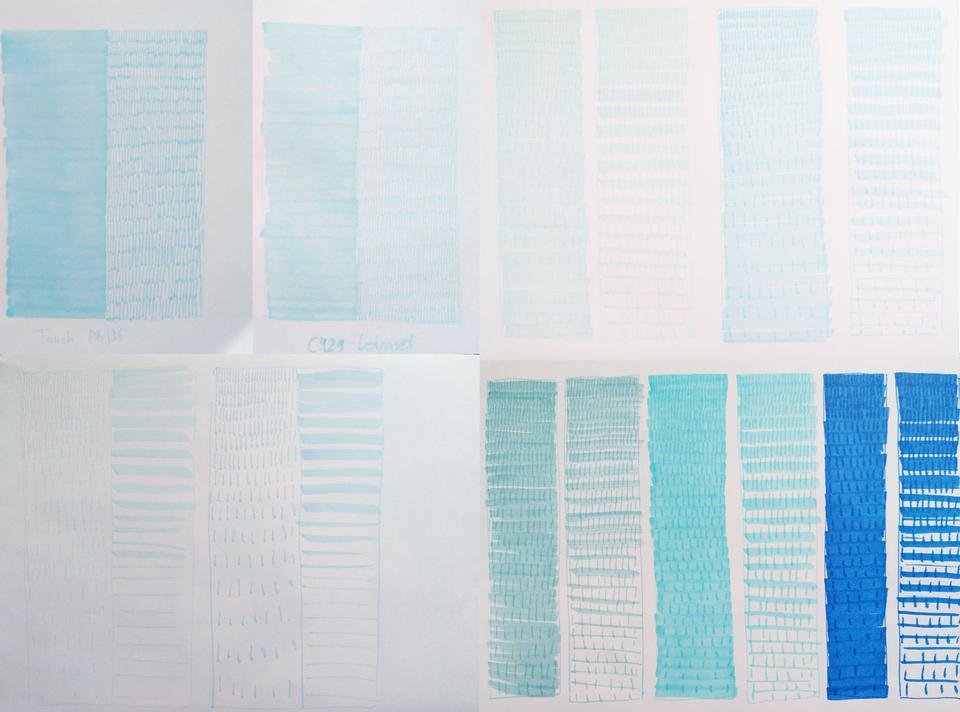 Touch PB 185
C429 Letraset